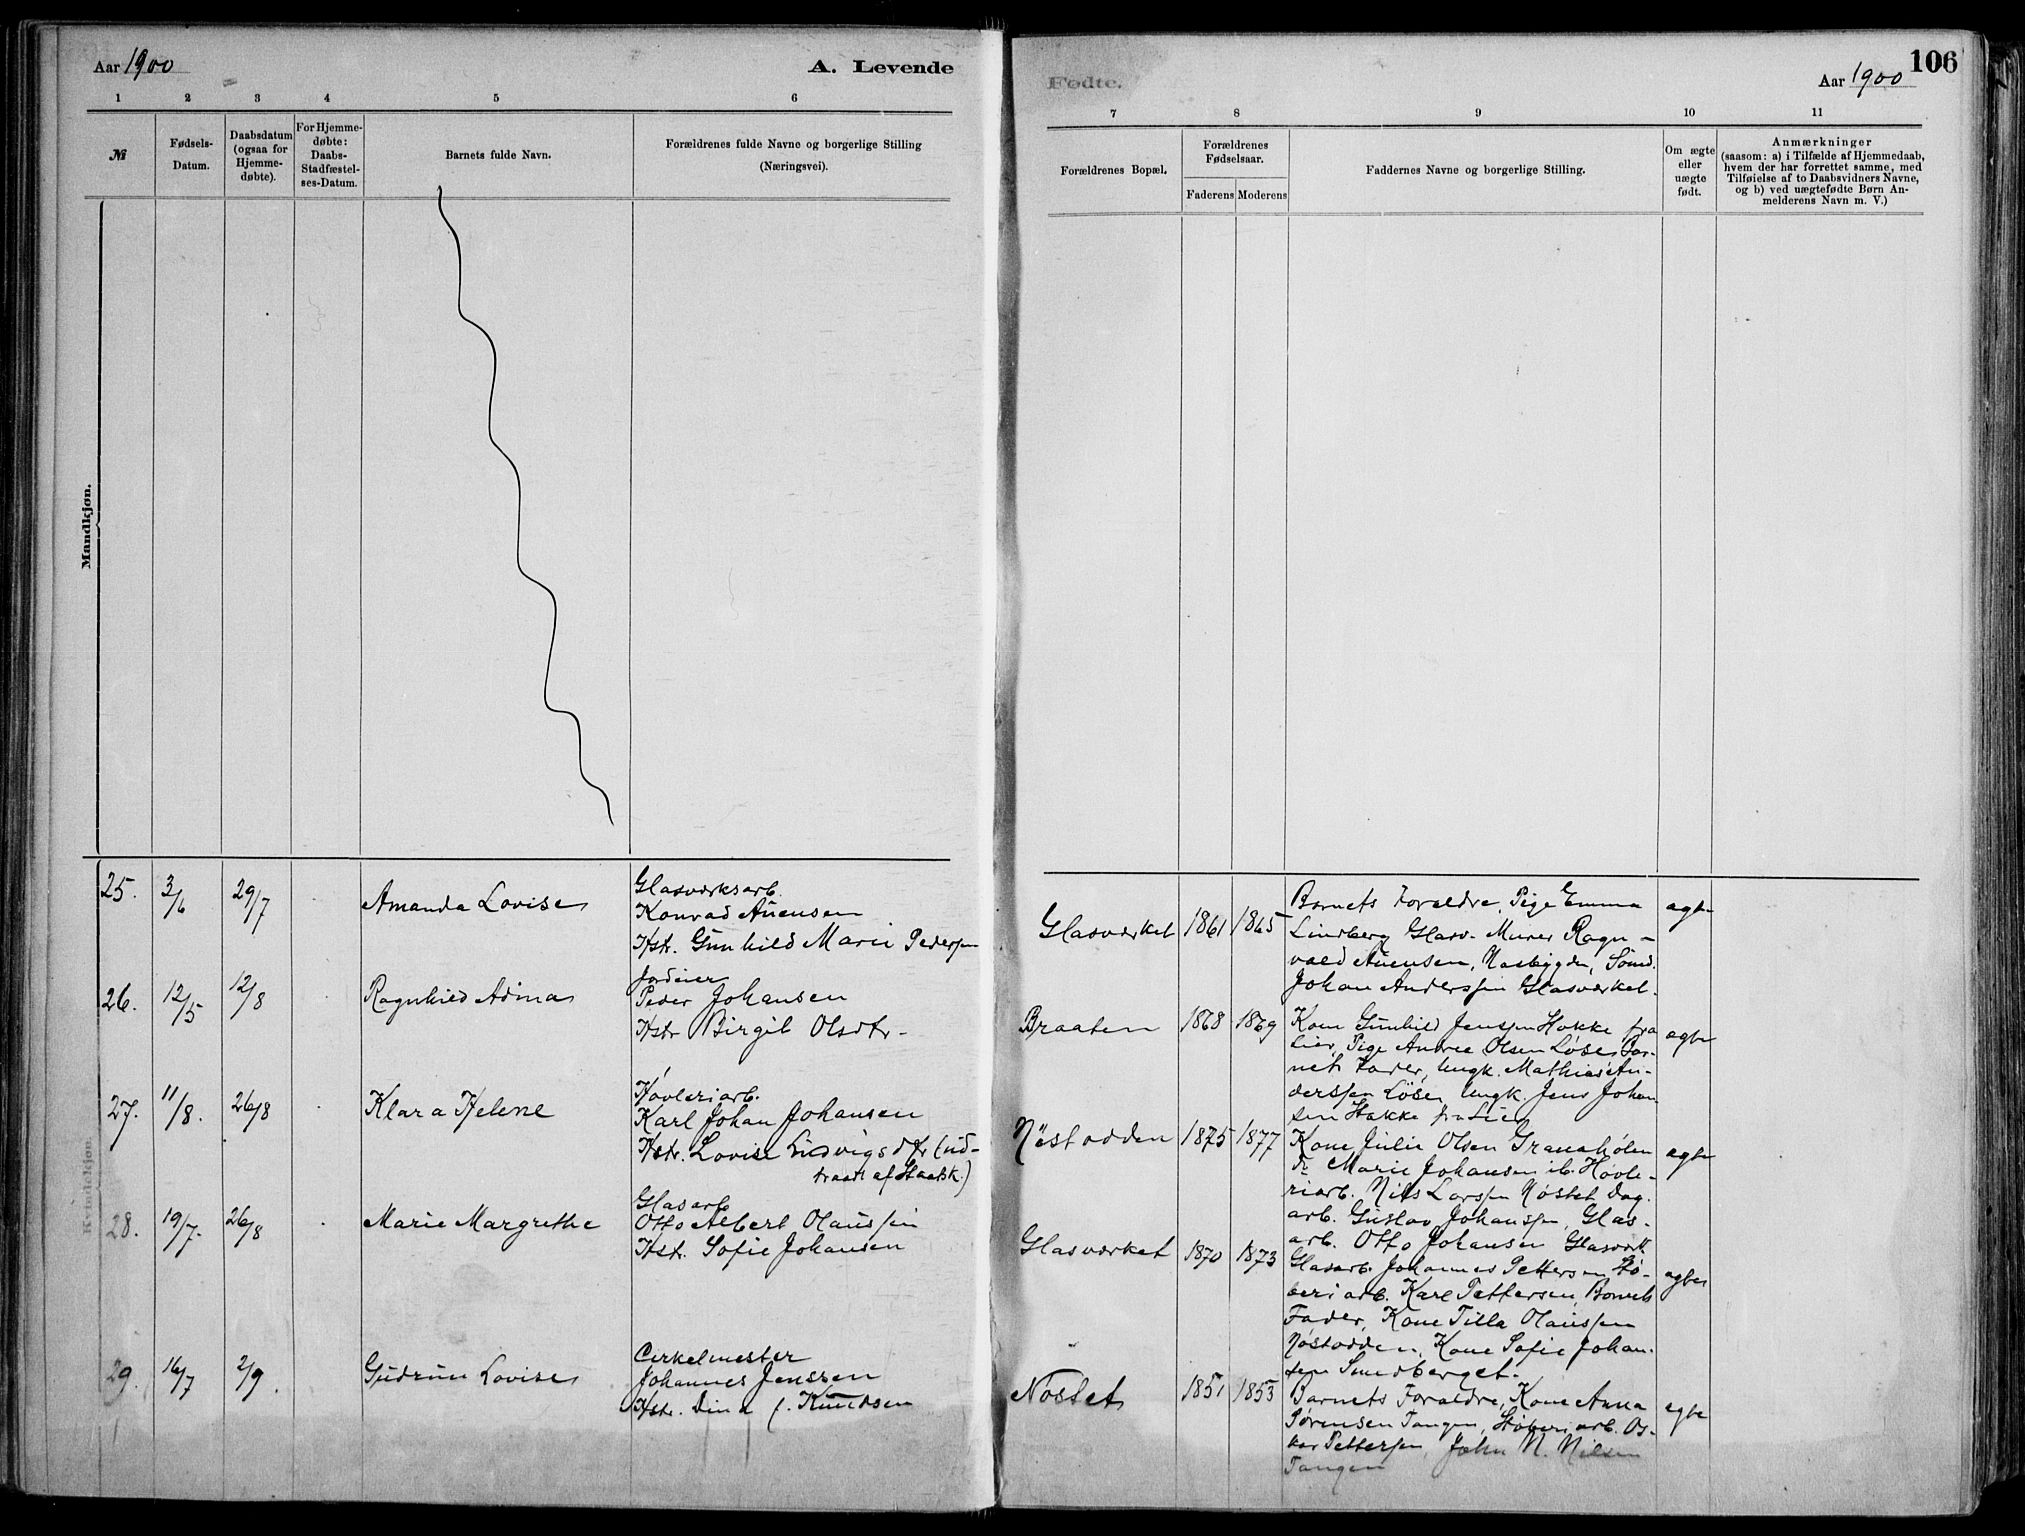 Aar 1900
A. Levende
Fødte.
Aar 1900
106
1 2 3 4 5 6
7 8 9 10 11
№
Fødsels-
Datum.
Daabsdatum
(ogsaa for
Hjemme-
døbte).
For Hjemme-
døbte:
Daabs-
Stadfæstel-
ses-Datum.
Barnets fulde Navn.
Forældrenes fulde Navne og borgerlige Stilling
(Næringsvei).
Forældrenes Bopæl.
Forældrenes
Fødselsaar.
Faderens Moderens
Faddernes Navne og borgerlige Stilling.
Om ægte
eller
uægte
født.
Anmærkninger
(saasom: a) i Tilfælde af Hjemmedaab,
hvem der har forrettet samme, med
Tilføielse af to Daabsvidners Navne,
og b) ved uægtefødte Børn An-
melderens Navn m. V.)
Mandkjøn.
Kvindekjøn.
25. 3/6 29/7 Amanda Lovise
Glasværksarb.
Konrad Auensen
Hstr. Gunhild Marie Pedersen
Glasværket 1861 1865
Barnets Forældre, Pige Emma
Lindberg Glasv. Murer Ragn-
vald Auensen, Næsbygden,
Johan Anderssen Glasværket.
ægte
26. 12/5 12/8 Ragnhild Adina
Jordeier
Peder Johansen
Hstr Birgit Olsdtr.
Braaten 1868 1869
Kone Gunhild Jenssen Hakke fra
Lier, Pige Andrea Olsen Løse, Bar-
nets Fader, Ungk. Mathias An-
derssen Løse, Ungk. Jens Johan-
sen Hakke fra Lier
ægte
27. 11/8. 26/8 Klara Helene
Høvleriarb.
Karl Johan Johansen
Hstr. Lovise Ludvigsdtr (ud-
traadt af Statsk.)
Nøstodden 1875 1877
Kone Julie Olsen
Marie Johansen ib. Høvle-
riarb. Nils Larssen Nøstet, Dag.
arb. Gustav Johanssen, Glas-
arb. Otto Johansen Glasværk.
ægte
28. 19/7. 26/8 Marie Margrethe
Glasarb
Otto Albert Olaussen
Hstr. Sofie Johansen
Glasværket 1870 1873
Glasarb. Johannes Pettersen Stø-
beriarb. Karl Pettersen, Barnets
Fader, Kone Tilla Olaussen
Nøstodden, Kone Sofie Johan-
sen Smedberget.
ægte
29. 16/7 2/9. Gudrun Lovise
Cirkelmester
Johannes Jenssen
Hstr. Dina f. Knudsen
Nøstet 1851 1853
Barnets Forældre, Kone Anna
Sørensen Tangen, Støberiarb. Os-
kar Pettersen, John N. Nilsen
Tangen
ægte